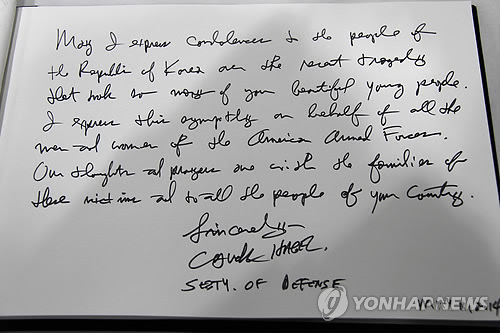 May I express condolences to the people of
the Republic of Korea over the recent tragedy
that took so many of your beautiful young people.
I express this sympathy on behalf of all the
men and women of the America Armed Forces.
Our thoughts and prayers are with the families of
these victims and to all the people of your Country.
Sincerely
Chuck HAGEL
SECTY. OF DEFENSE
YONHAPNEWS